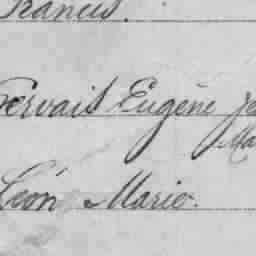 Francis.
Gervais Eugène Je
Ma
Léon Marie.